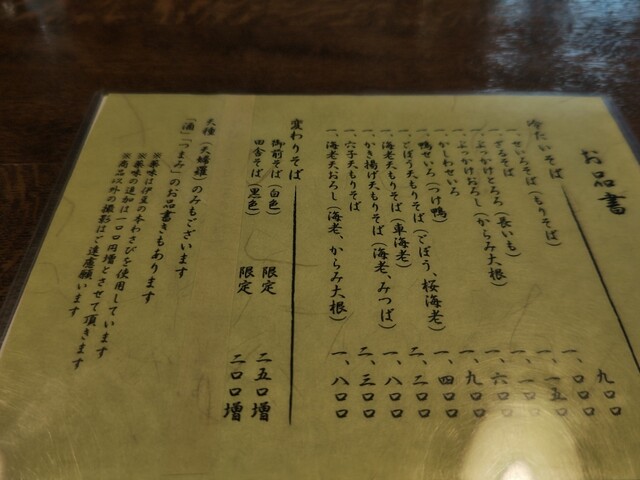 お品書
冷たいそば
一、せいろそば(もりそば) 九〇〇
一、ざるそば 一、〇〇〇
一、ぶっかけとろろ(長いも) 一、一五〇
一、ぶっかけおろし(からみ大根) 一、一〇〇
一、かしわせいろ 一、六〇〇
一、鴨せいろ(つけ鴨) 一、九〇〇
一、ごぼう天もりそば(ごぼう、桜海老) 一、四〇〇
一、海老天もりそば(車海老) 二、二〇〇
一、かき揚げ天もりそば(海老、みつば) 一、八〇〇
一、穴子天もりそば 二、三〇〇
一、海老天おろし(海老、からみ大根) 一、八〇〇
変わりそば
御前そば(白色) 限定 二五〇増
田舎そば(黒色) 限定 二〇〇増
天種(天婦羅)のみもございます
「酒」「つまみ」のお品書きもあります
※薬味は伊豆の本わさびを使用しています
※薬味の追加は一〇〇円増とさせて頂きます
※商品以外の撮影はご遠慮願います